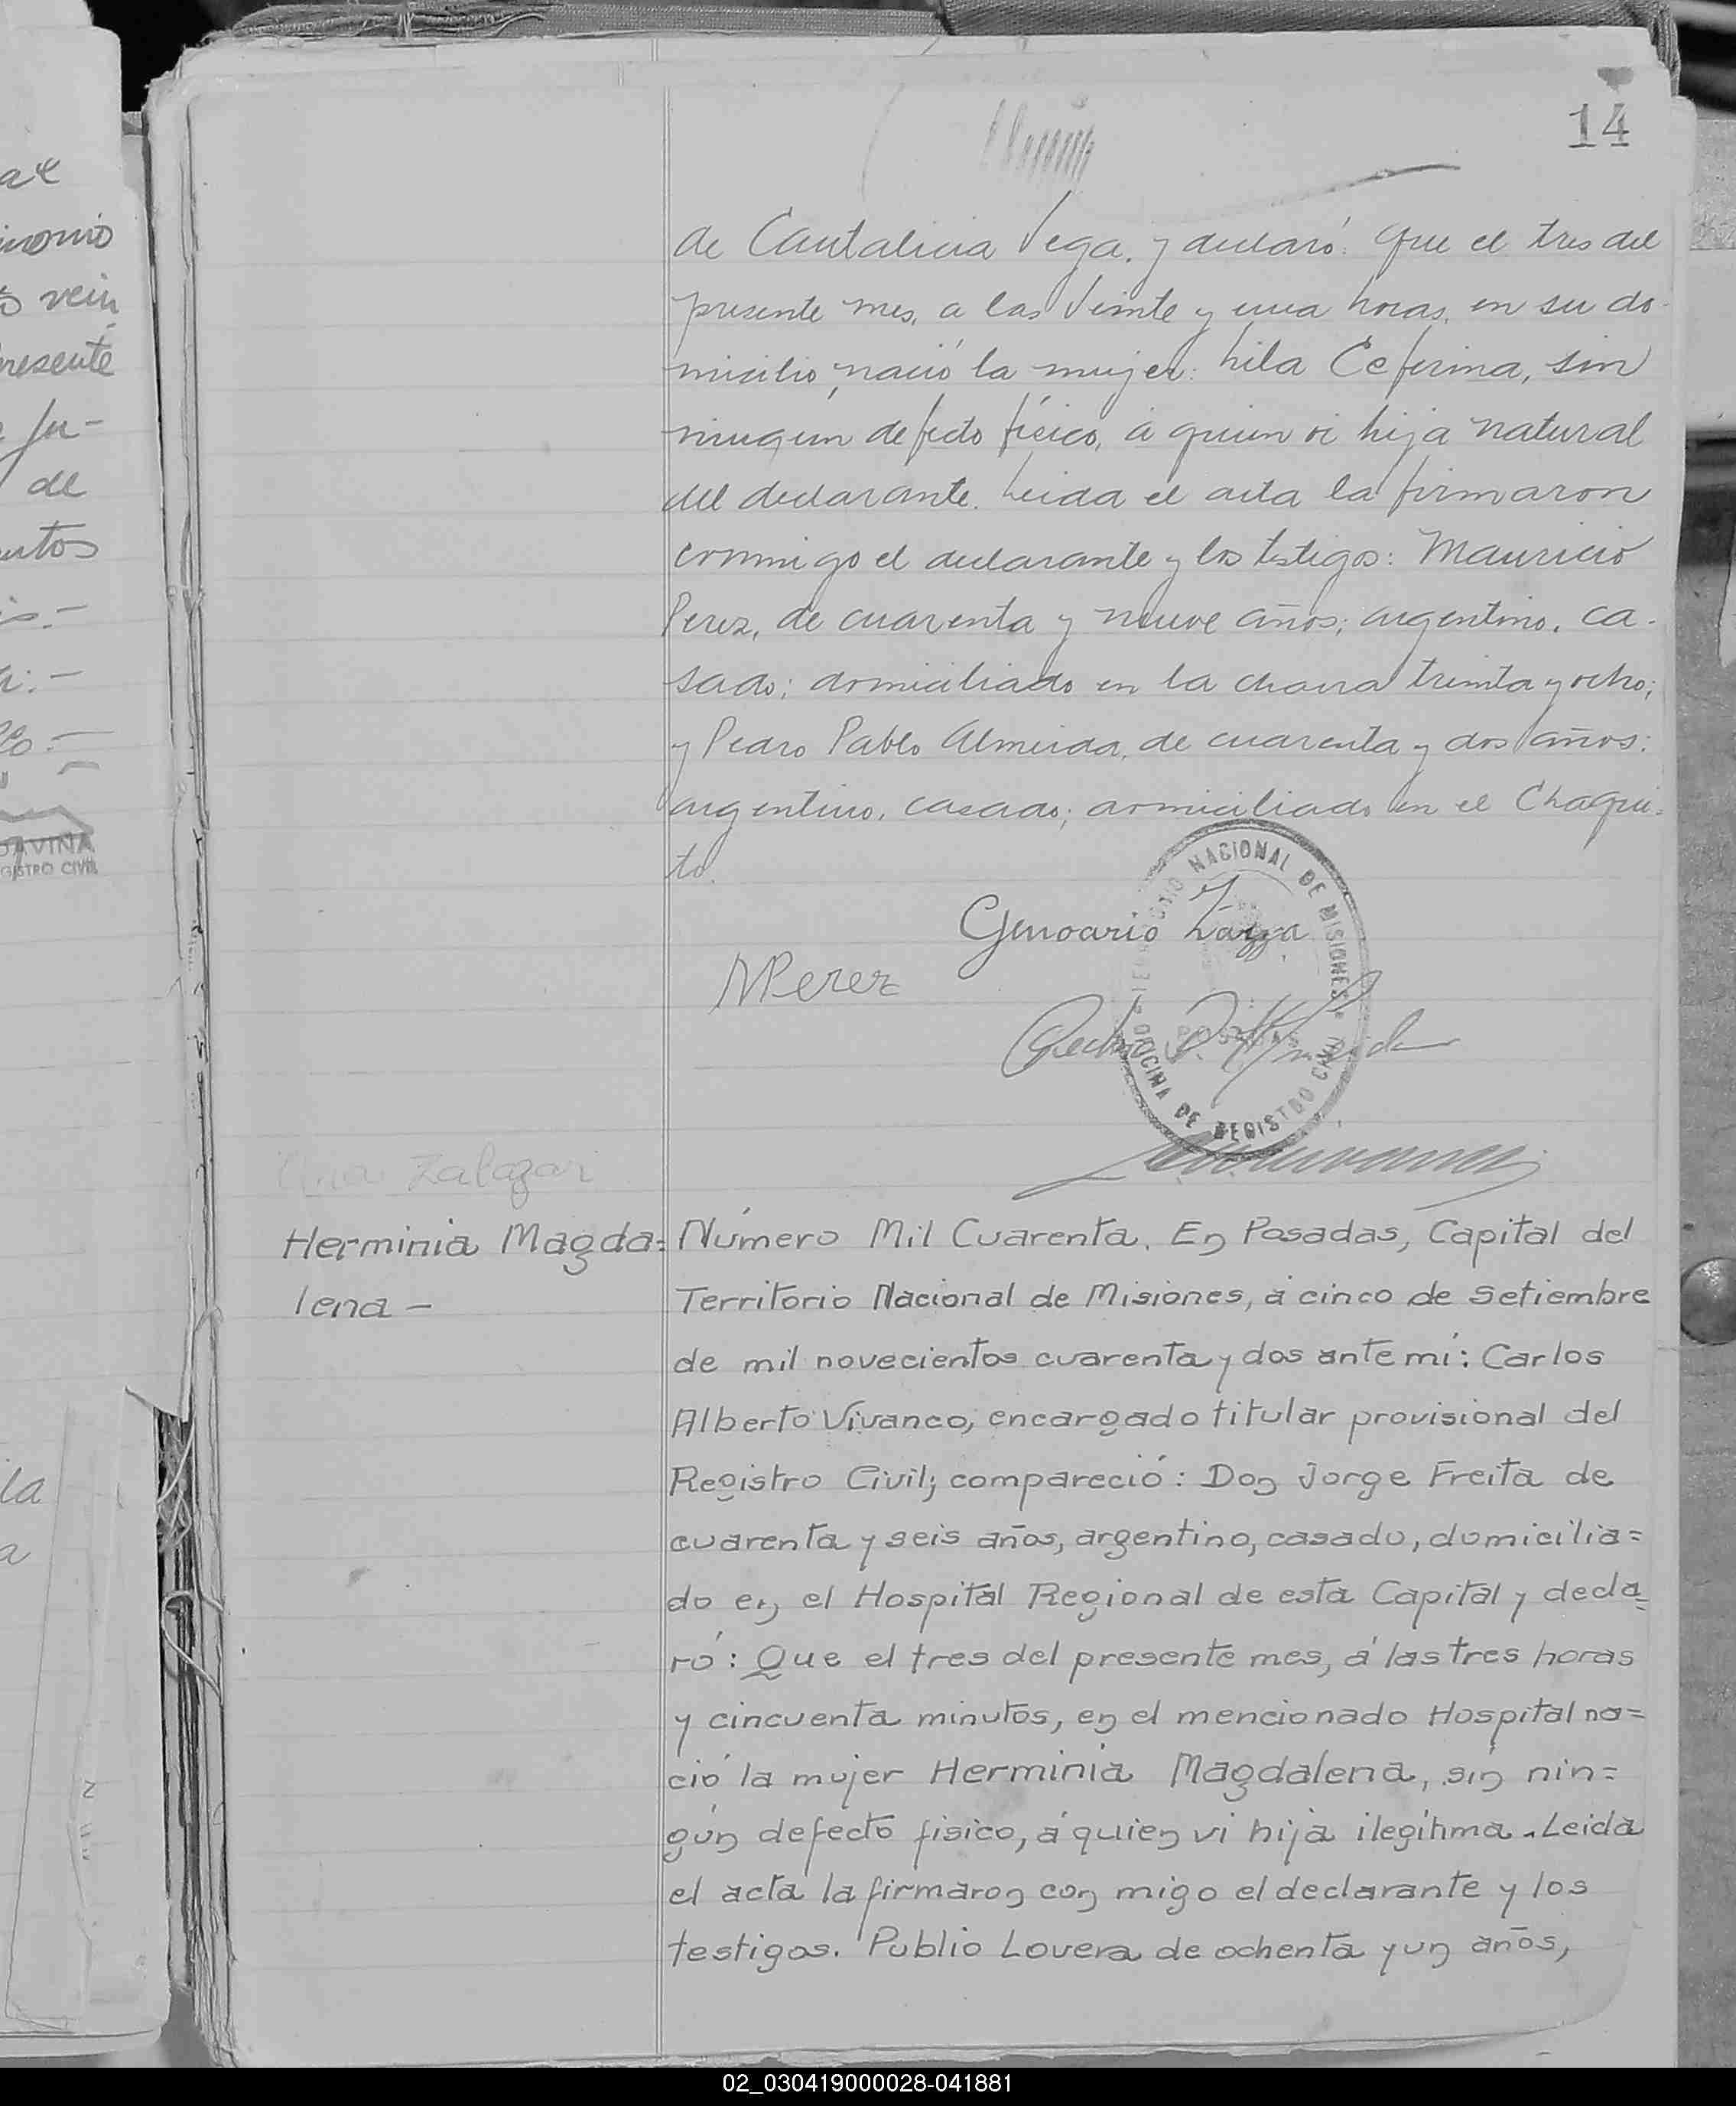 14
de Cantalicia Vega. y declaró: que el tres del
presente mes, a las veinte y una horas, en su do-
micilio, nació la mujer: hila Ceferina, sin
ningun defecto físico, á quien vi hija natural
del declarante. Leida el acta la firmaron
conmigo el declarante y los testigos: Mauricio
Perez, de cuarenta y nueve años; argentino, ca-
sado; domiciliado en la chacra treinta y ocho;
y Pedro Pablo Almeida, de cuarenta y dos años:
argentino, casado; domiciliado en el Chaqui-
to.
NACIONAL DE MISIONES
OFICINA DE REGISTRO CIVIL
Genoario
MPerez
Pedro P. Almeida
Zalazar
Herminia Magda=
lena -
Número Mil Cuarenta. En Posadas, Capital del
Territorio Nacional de Misiones, á cinco de Setiembre
de mil novecientos cuarenta y dos ante mí: Carlos
Alberto Vivanco, encargado titular provisional del
Registro Civil; compareció: Don Jorge Freita de
cuarenta y seis años, argentino, casado, domicilia=
do en el Hospital Regional de esta Capital y decla=
ró: Que el tres del presente mes, á las tres horas
y cincuenta minutos, en el mencionado Hospital na=
ció la mujer Herminia Magdalena, sin nin=
gún defecto fisico, á quien vi hija ilegítima. Leida
el acta la firmaron con migo el declarante y los
testigos. Publio Lovera de ochenta y un años,
ae
imonio
vein
presente
fu-
de
GISTRO CIVIL
la
a
02_030419000028-041881